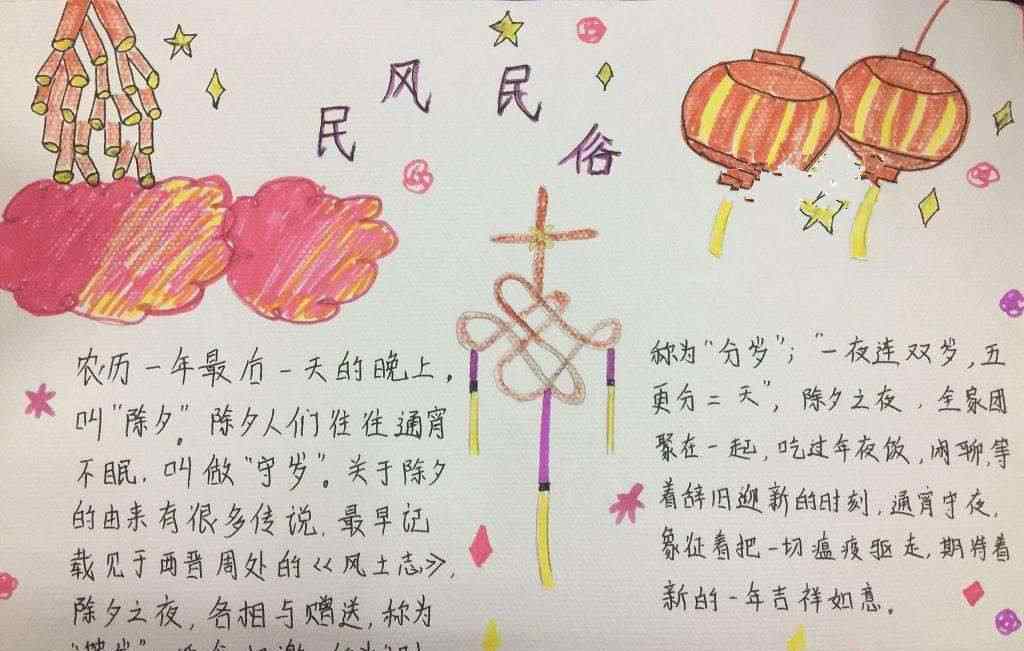 民风民俗
农历一年最后一天的晚上,
叫“除夕”。除夕人们往往通宵
不眠,叫做“守岁”。关于除夕
的由来有很多传说,最早记
载见于两晋周处的《风土志》,
除夕之夜,各相与赠送,称为
称为“分岁”;“一夜连双岁,五
更分二天”,除夕之夜,全家团
聚在一起,吃过年夜饭,闲聊,等
着辞旧迎新的时刻,通宵守夜,
象征着把一切瘟疫驱走,期待着
新的一年吉祥如意。